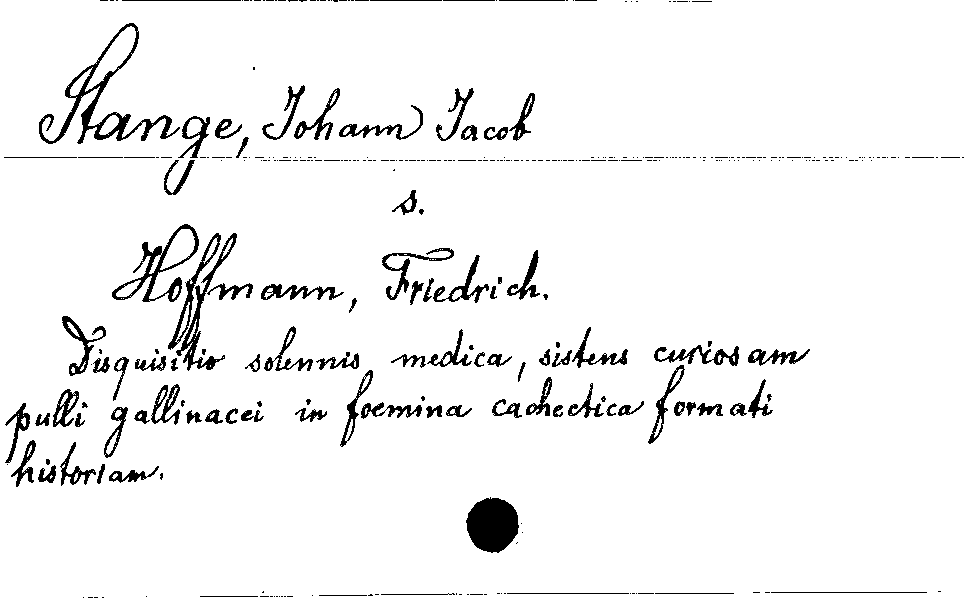 Stange, Johann Jacob
s.
Hoffmann, Friedrich.
Disquisitio solennis medica, sistens curiosam
pulli gallinacei in foemina cachectica formati
historiam.